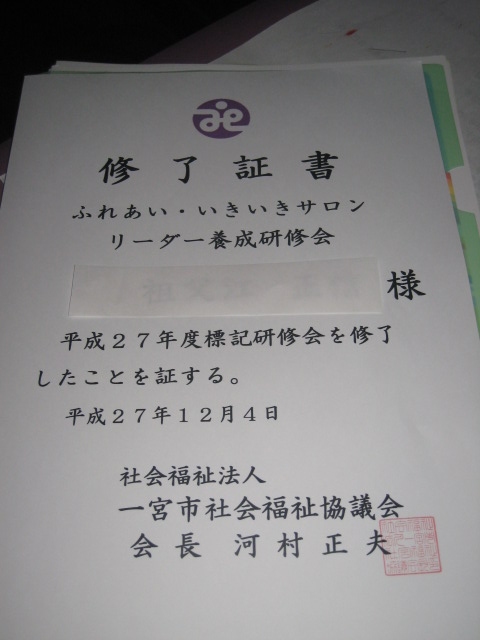 修了証書
ふれあい・いきいきサロン
リーダー養成研修会
様
平成27年度標記研修会を修了
したことを証する。
平成27年12月4日
社会福祉法人
一宮市社会福祉協議会
会長 河村正夫